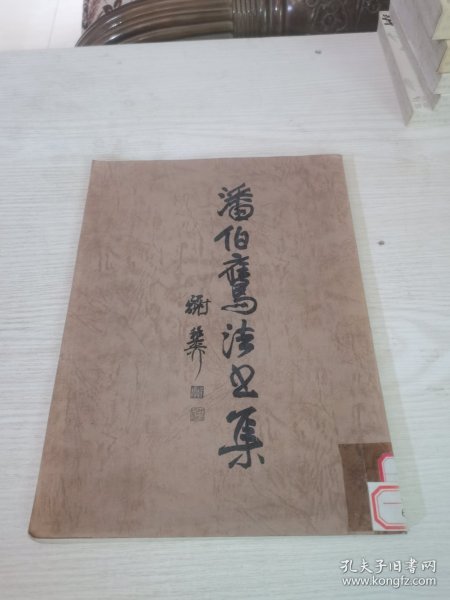 潘伯鹰法书集
谢
孔夫子旧书网
www.kongfz.com